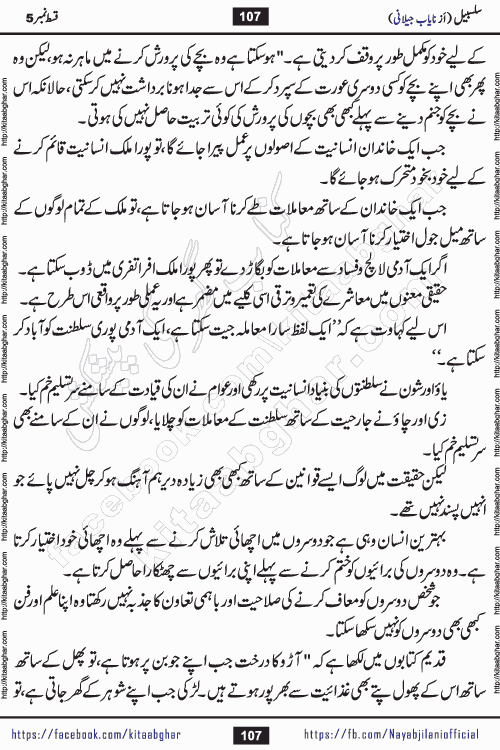 سلسبیل (از نایاب جیلانی)
107
قسط نمبر 5
کے لیے خود کو مکمل طور پر وقف کر دیتی ہے۔" ہو سکتا ہے وہ بچے کی پرورش کرنے میں ماہر نہ ہو، لیکن وہ
پھر بھی اپنے بچے کو کسی دوسری عورت کے سپرد کر کے اس سے جدا ہونا برداشت نہیں کر سکتی، حالانکہ اس
نے بچے کو جنم دینے سے پہلے کبھی بھی بچوں کی پرورش کی کوئی تربیت حاصل نہیں کی ہوتی۔
جب ایک خاندان انسانیت کے اصولوں پر عمل پیرا جائے گا، تو پورا ملک انسانیت قائم کرنے
کے لیے خود بخود متحرک ہو جائے گا۔
جب ایک خاندان کے ساتھ معاملات طے کرنا آسان ہو جاتا ہے، تو ملک کے تمام لوگوں کے
ساتھ میل جول اختیار کرنا آسان ہو جاتا ہے۔
اگر ایک آدمی لالچ و فساد سے معاملات کو بگاڑ دے تو پھر پورا ملک افراتفری میں ڈوب سکتا ہے۔
حقیقی معنوں میں معاشرے کی تعمیر و ترقی اسی کلیے میں مضمر ہے اور یہ عملی طور پر واقعی اس طرح ہے۔
اس لیے کہاوت ہے کہ ’’ایک لفظ سارا معاملہ جیت سکتا ہے، ایک آدمی پوری سلطنت کو آباد کر
سکتا ہے۔‘‘
یاؤ اور شون نے سلطنتوں کی بنیاد انسانیت پر رکھی اور عوام نے ان کی قیادت کے سامنے سر تسلیم خم کیا۔
زی اور چاؤ نے جارحیت کے ساتھ سلطنت کے معاملات کو چلایا، لوگوں نے ان کے سامنے بھی
سر تسلیم خم کیا۔
لیکن حقیقت میں لوگ ایسے قوانین کے ساتھ کبھی بھی زیادہ دیر ہم آہنگ ہو کر چل نہیں پائے جو
انہیں پسند نہیں تھے۔
بہترین انسان وہی ہے جو دوسروں میں اچھائی تلاش کرنے سے پہلے وہ اچھائی خود اختیار کرتا
ہے۔ وہ دوسروں کی برائیوں کو ختم کرنے سے پہلے اپنی برائیوں سے چھٹکارا حاصل کرتا ہے۔
جو شخص دوسروں کو معاف کرنے کی صلاحیت اور باہمی تعاون کا جذبہ نہیں رکھتا وہ اپنا علم اور فن
کبھی بھی دوسروں کو نہیں سکھا سکتا۔
قدیم کتابوں میں لکھا ہے کہ "آڑو کا درخت جب اپنے جوبن پر ہوتا ہے، تو پھل کے ساتھ
ساتھ اس کے پھول پتے بھی غذائیت سے بھرپور ہوتے ہیں۔ لڑکی جب اپنے شوہر کے گھر جاتی ہے، تو
https://facebook.com/kitaabghar
107
https://fb.com/Nayabjilaniofficial
http://kitaabghar.com
کتاب گھر کی پیشکش
kitaabghar.com
facebook.com/kitaabghar